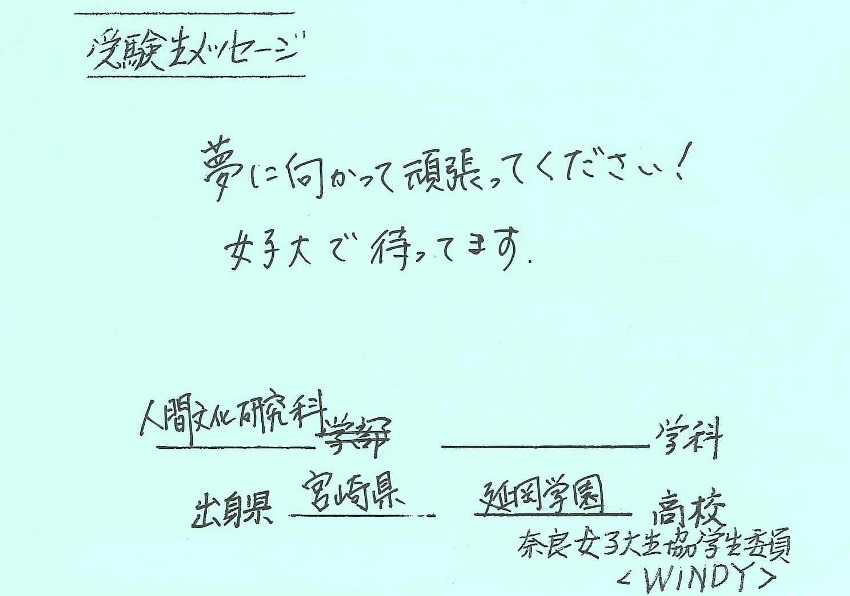 受験生メッセージ
夢に向かって頑張ってください!
女子大で待ってます.
人間文化研究科学部 学科
出身県 宮崎県 延岡学園 高校
奈良女子大生協学生委員
<WiNDY>